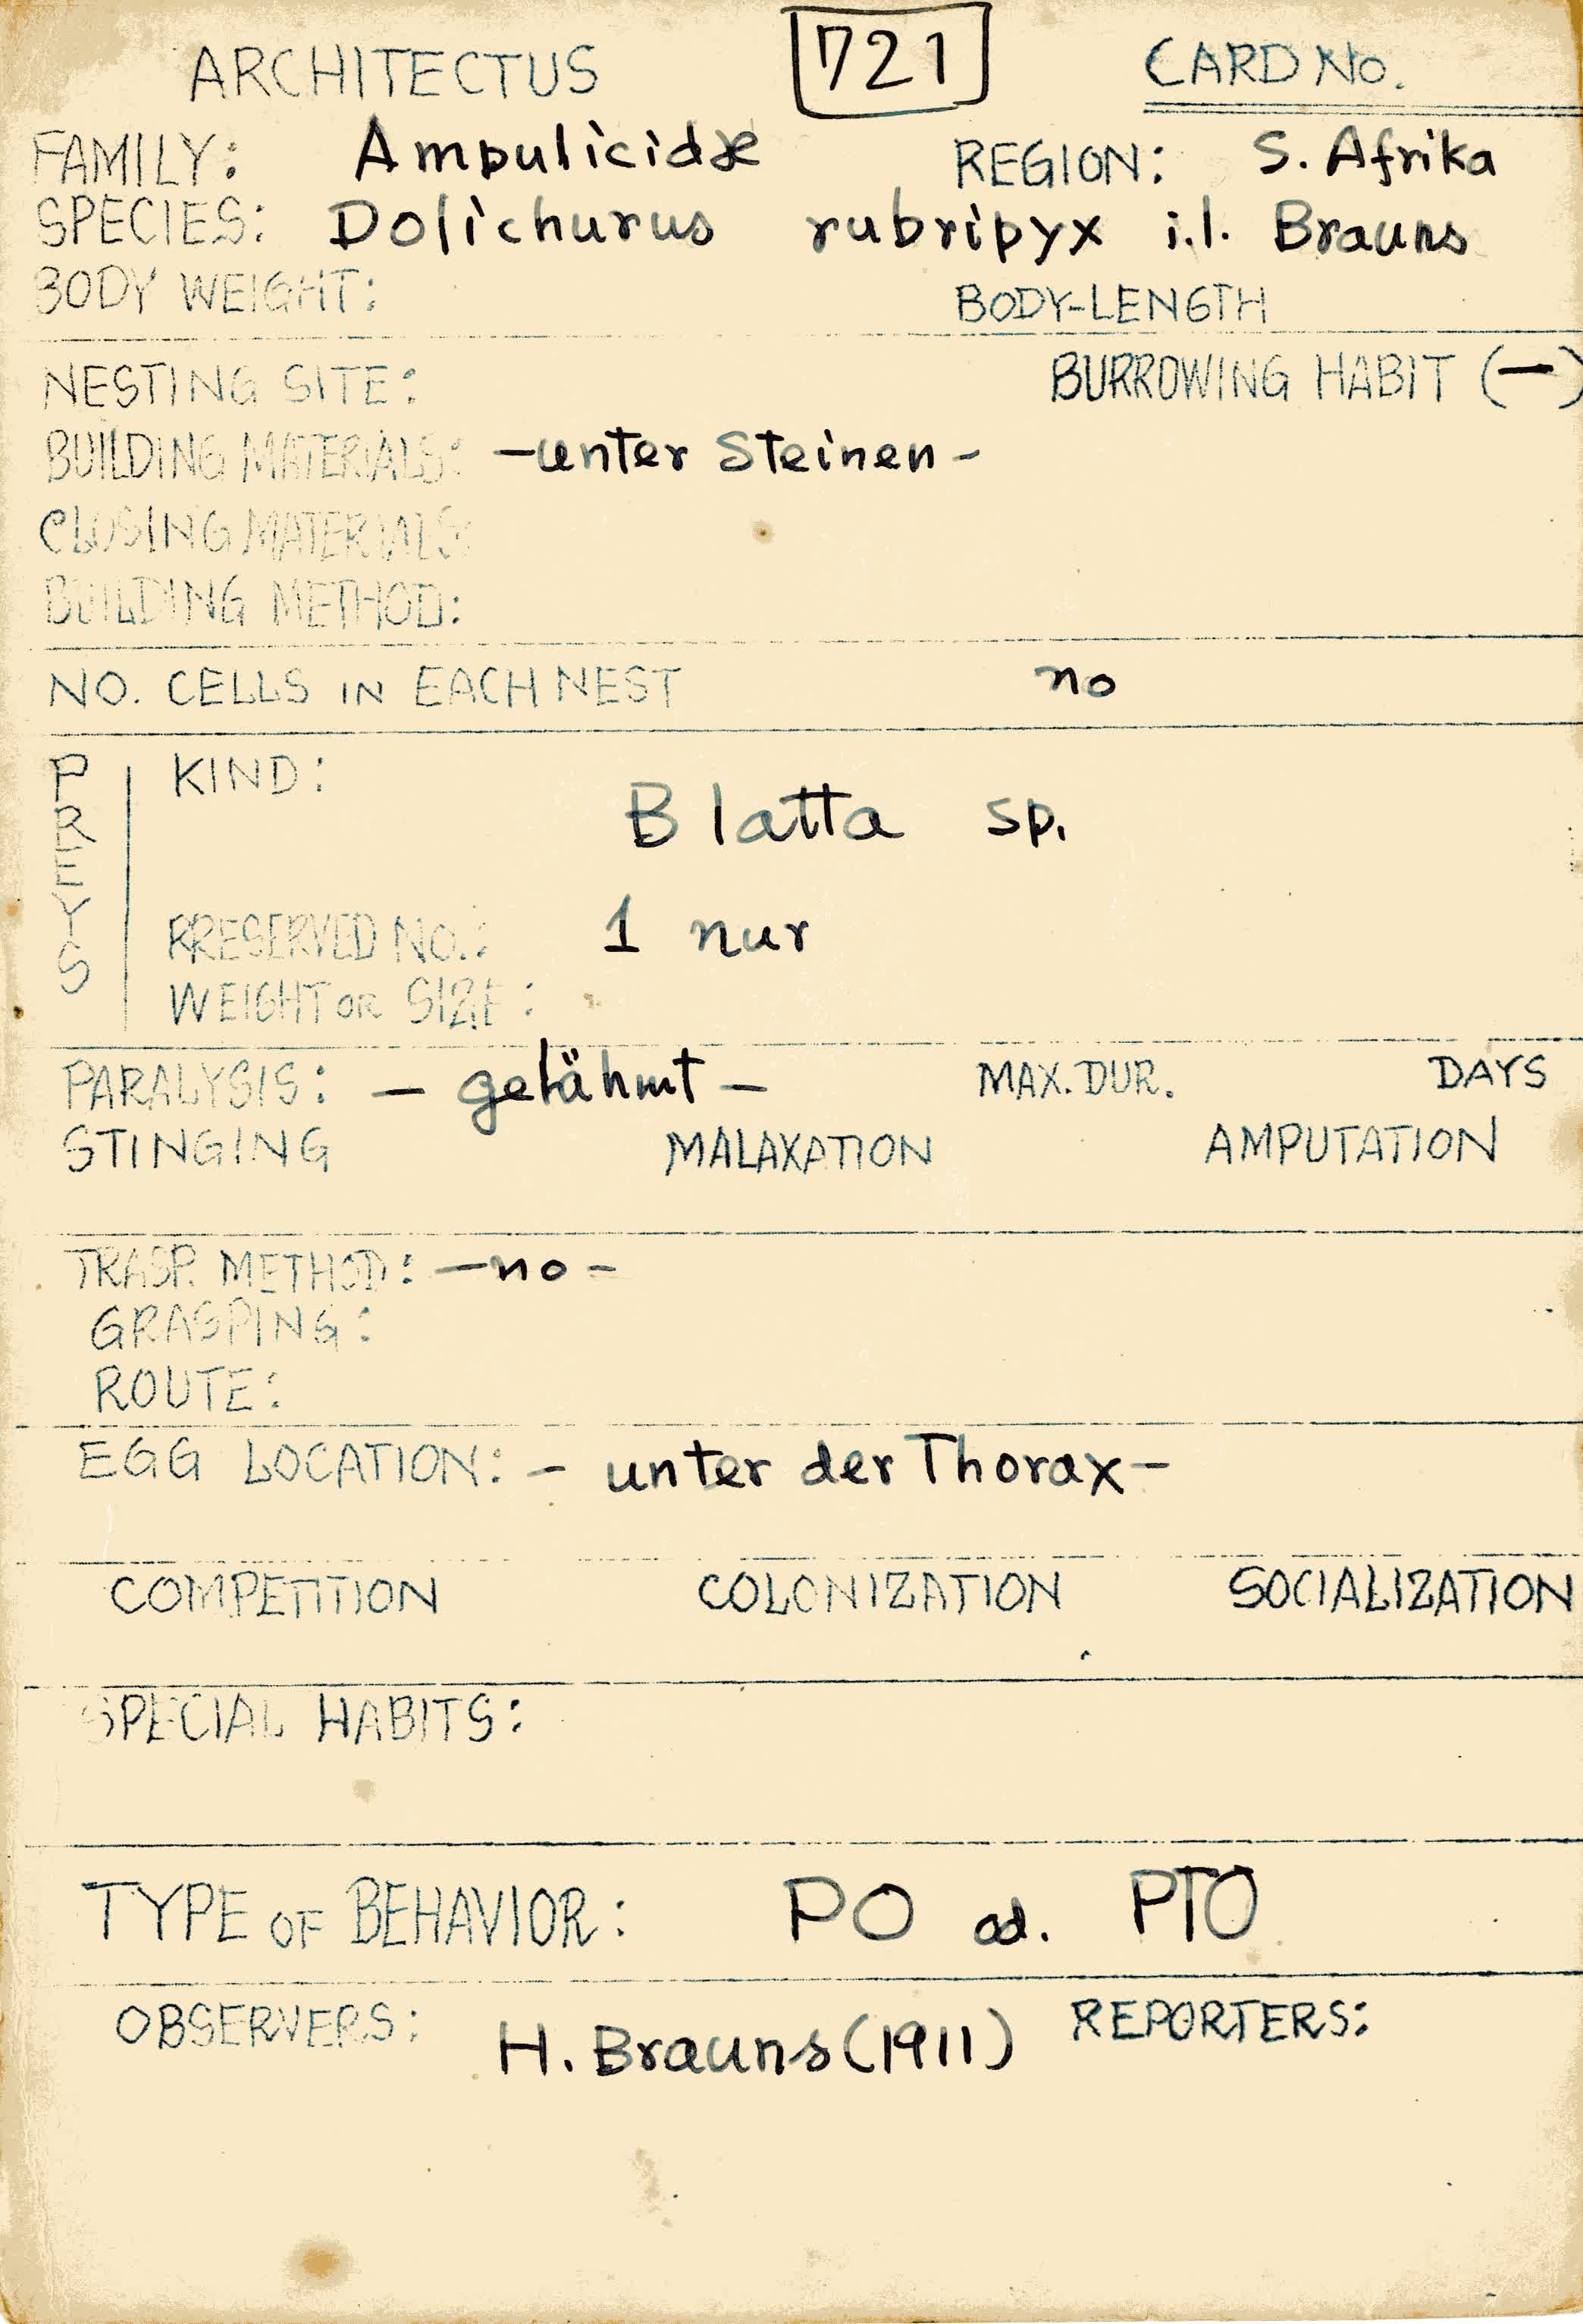 ARCHITECTUS 721 CARD No.
FAMILY: Ampulicidæ REGION: S. Afrika
SPECIES: Dolichurus rubripyx i.l. Brauns
BODY WEIGHT: BODY-LENGTH
NESTING SITE: BURROWING HABIT (—)
BUILDING MATERIALS: —unter Steinen—
CLOSING MATERIALS:
BUILDING METHOD:
NO. CELLS IN EACH NEST no
PREYS
KIND: Blatta sp.
PRESERVED NO.: 1 nur
WEIGHT OR SIZE:
PARALYSIS: — gelähmt — MAX. DUR. DAYS
STINGING MALAXATION AMPUTATION
TRASP. METHOD: —no—
GRASPING:
ROUTE:
EGG LOCATION: — unter der Thorax—
COMPETITION COLONIZATION SOCIALIZATION
SPECIAL HABITS:
TYPE OF BEHAVIOR: PO od. PTO
OBSERVERS: H. Brauns (1911) REPORTERS: